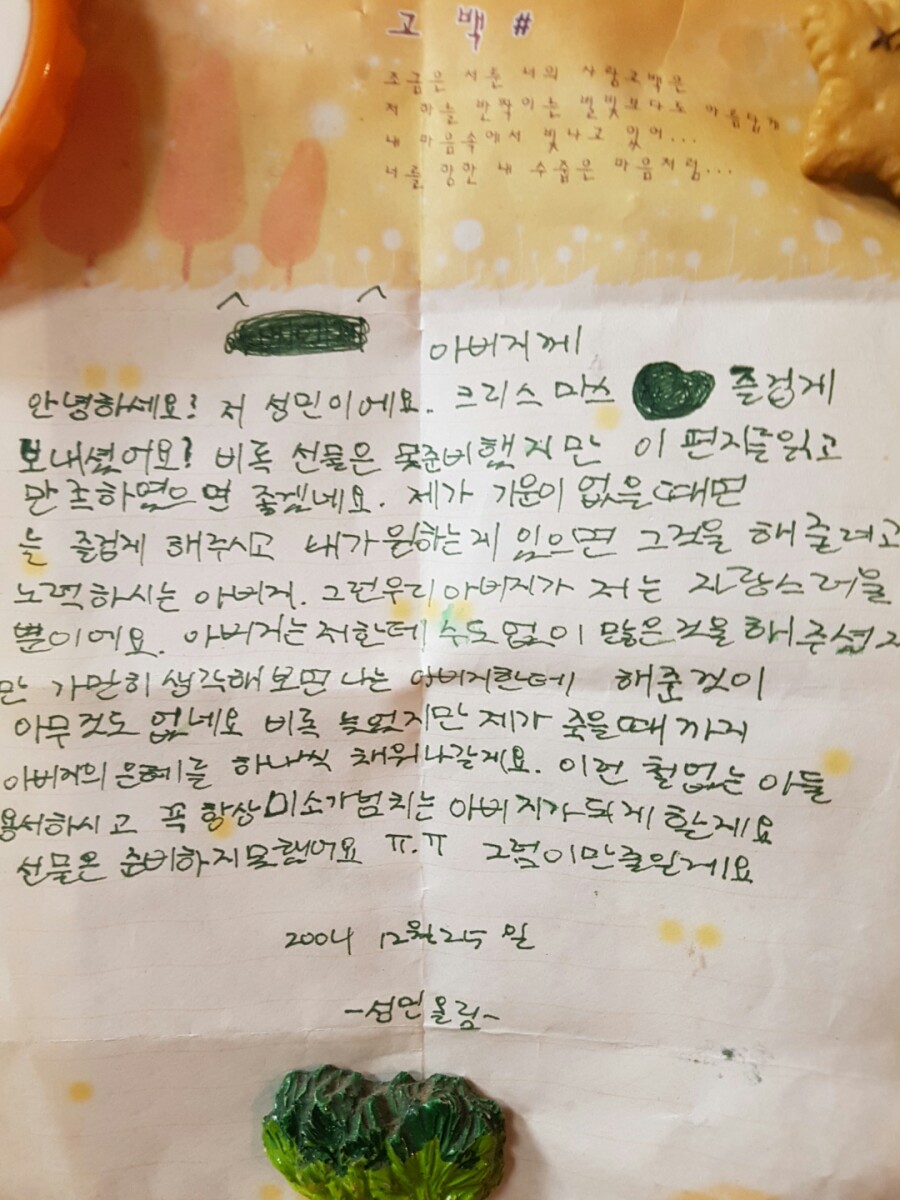 고백#
조금은 서툰 너의 사랑고백은
저 하늘 반짝이는 별빛보다도 아름답게
내 마음속에서 빛나고 있어...
너를 향한 내 수줍은 마음처럼...
아버지께
안녕하세요! 저 성민이에요. 크리스마스 즐겁게
보내셨어요? 비록 선물은 못준비했지만 이 편지를읽고
만족하였으면 좋겠네요. 제가 기운이 없을때면
늘 즐겁게 해주시고 내가원하는게 있으면 그것을 해줄려고
노력하시는 아버지. 그런우리아버지가 저는 자랑스러울
뿐이에요. 아버지는저한테 수도없이 많은것을해주셨지
만 가만히 생각해보면 나는 아버지한테 해준것이
아무것도 없네요 비록 늦었지만 제가 죽을때까지
아버지의 은혜를 하나씩 채워나갈게요. 이런 철없는 아들
용서하시고 꼭 항상미소가넘치는 아버지가되게 할게요
선물은 준비하지못했어요 ㅠ.ㅠ 그럼이만줄일게요
2004 12월25일
-성민올림-